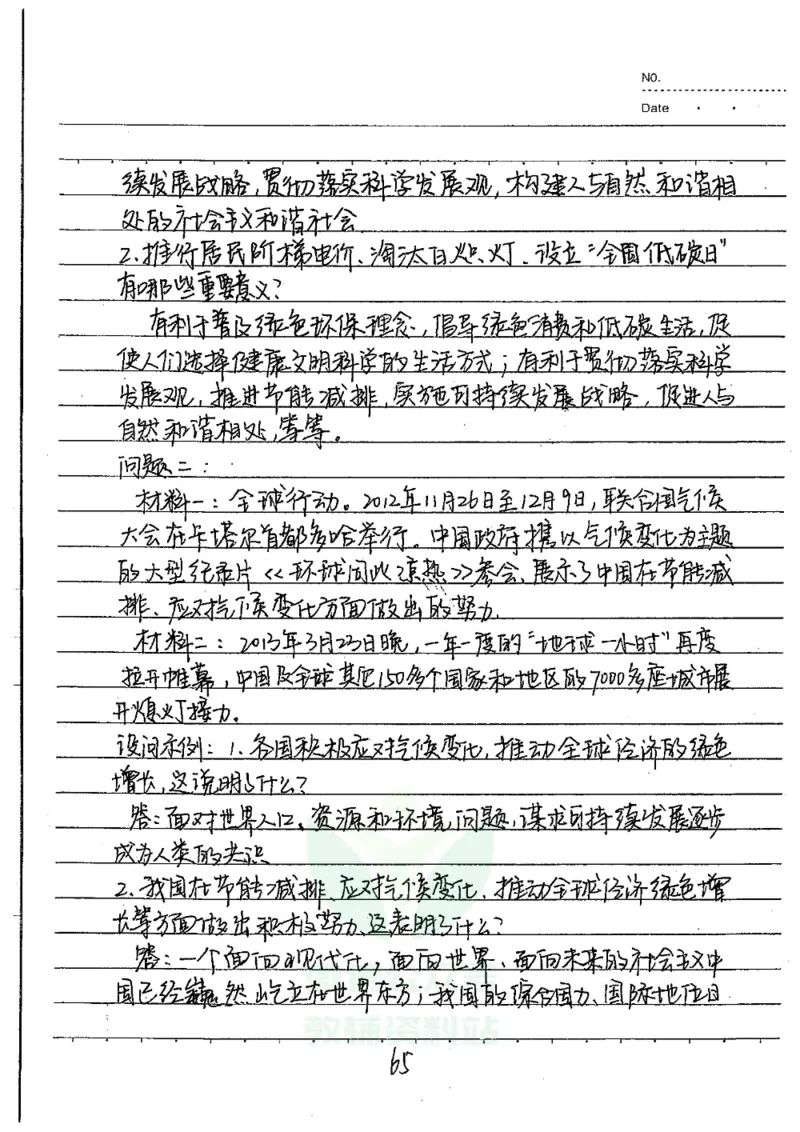 NO.
Date
续发展战略，贯彻落实科学发展观，构建人与自然和谐相
处的社会主义和谐社会
2.推行居民阶梯电价、淘汰白炽灯、设立“全国低碳日”
有哪些重要意义？
有利于普及绿色环保理念，倡导绿色消费和低碳生活，促
使人们选择健康文明科学的生活方式；有利于贯彻落实科学
发展观，推进节能减排，实施可持续发展战略，促进人与
自然和谐相处，等等。
问题二：
材料一：全球行动。2012年11月26日至12月9日，联合国气候
大会在卡塔尔首都多哈举行。中国政府携以气候变化为主题
的大型纪录片《环球同此凉热》参会，展示了中国在节能减
排、应对气候变化方面做出的努力.
材料二：2013年3月23日晚，一年一度的“地球一小时”再度
拉开帷幕，中国及全球其他150多个国家和地区的7000多座城市展
开熄灯接力。
设问示例：1.各国积极应对气候变化，推动全球经济的绿色
增长，这说明了什么？
答：面对世界人口、资源和环境问题，谋求可持续发展逐步
成为人类的共识
2.我国在节能减排、应对气候变化、推动全球经济绿色增
长等方面做出积极努力，这表明了什么？
答：一个面向现代化，面向世界、面向未来的社会主义中
国已经巍然屹立在世界东方；我国的综合国力、国际地位日
教辅资料站
65